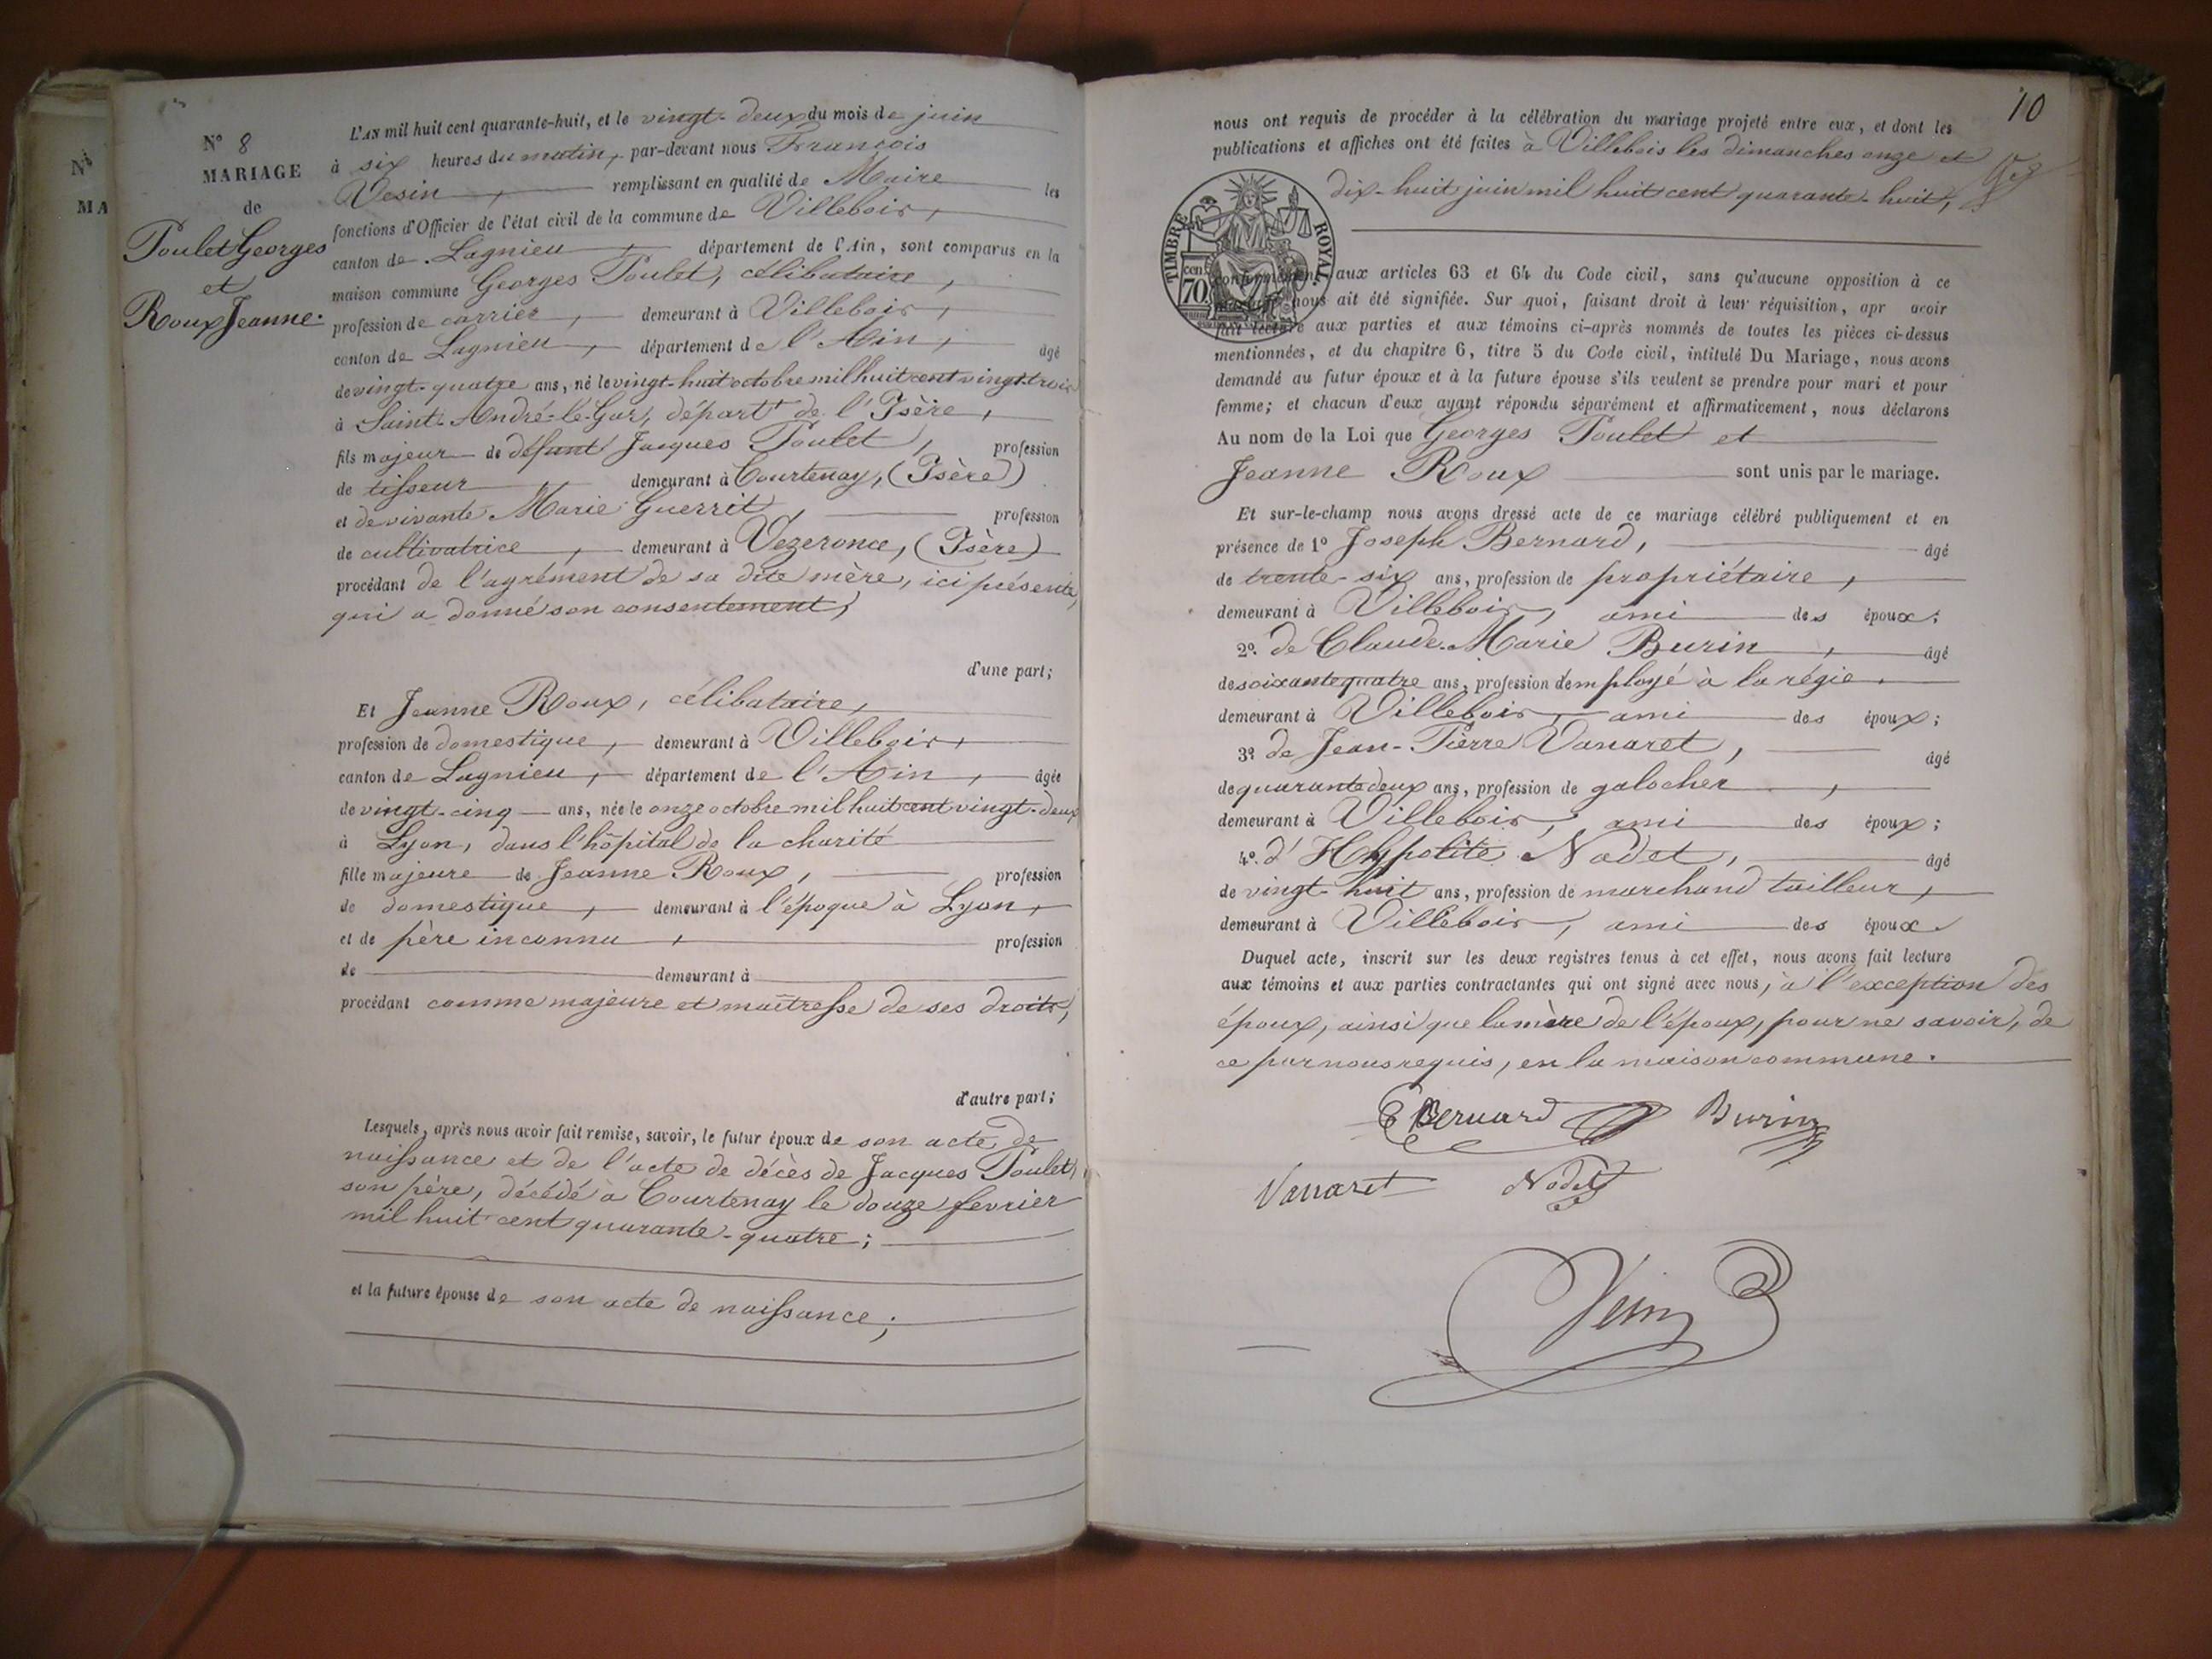 N° 8
MARIAGE
de
Poulet Georges
et
Roux Jeanne.
L'AN mil huit cent quarante-huit, et le vingt-deux du mois de juin
à six heures du matin, par-devant nous François
Vesin, remplissant en qualité de Maire les
fonctions d'Officier de l'état civil de la commune de Villebois,
canton de Lagnieu, département de l'Ain, sont comparus en la
maison commune Georges Poulet, célibataire,
profession de carrier, demeurant à Villebois,
canton de Lagnieu, département de l'Ain, âgé
de vingt-quatre ans, né le vingt-huit octobre mil huit cent vingt-trois
à Saint-André-le-Gar, départt de l'Isère,
fils majeur de défunt Jacques Poulet, profession
de tisseur demeurant à Courtenay, (Isère)
et de vivante Marie Guerrit, profession
de cultivatrice, demeurant à Vezeronce, (Isère)
procédant de l'agrément de sa dite mère, ici présente,
qui a donné son consentement,
d'une part;
Et Jeanne Roux, célibataire,
profession de domestique, demeurant à Villebois,
canton de Lagnieu, département de l'Ain, âgée
de vingt-cinq ans, née le onze octobre mil huit cent vingt-deux
à Lyon, dans l'hôpital de la charité
fille majeure de Jeanne Roux, profession
de domestique, demeurant à l'époque à Lyon,
et de père inconnu, profession
de demeurant à
procédant comme majeure et maîtresse de ses droits,
d'autre part;
Lesquels, après nous avoir fait remise, savoir, le futur époux de son acte de
naissance et de l'acte de décès de Jacques Poulet,
son père, décédé à Courtenay le douze fevrier
mil huit cent quarante-quatre;
et la future épouse de son acte de naissance;
10
nous ont requis de procéder à la célébration du mariage projeté entre eux, et dont les
publications et affiches ont été faites à Villebois les dimanches onze et
dix-huit juin mil huit cent quarante-huit,
TIMBRE ROYAL
70 cen
conformément aux articles 63 et 64 du Code civil, sans qu'aucune opposition à ce
mariage nous ait été signifiée. Sur quoi, faisant droit à leur réquisition, apr avoir
fait lecture aux parties et aux témoins ci-après nommés de toutes les pièces ci-dessus
mentionnées, et du chapitre 6, titre 5 du Code civil, intitulé Du Mariage, nous avons
demandé au futur époux et à la future épouse s'ils veulent se prendre pour mari et pour
femme; et chacun d'eux ayant répondu séparément et affirmativement, nous déclarons
Au nom de la Loi que Georges Poulet et
Jeanne Roux sont unis par le mariage.
Et sur-le-champ nous avons dressé acte de ce mariage célébré publiquement et en
présence de 1° Joseph Bernard, âgé
de trente-six ans, profession de propriétaire,
demeurant à Villebois, ami des époux;
2° de Claude-Marie Burin, âgé
de soixante quatre ans, profession d'employé à la régie,
demeurant à Villebois, ami des époux;
3° de Jean-Pierre Vanaret, âgé
de quarante deux ans, profession de galocher,
demeurant à Villebois, ami des époux;
4° d'Hypolite Nodet, âgé
de vingt-huit ans, profession de marchand tailleur,
demeurant à Villebois, ami des époux.
Duquel acte, inscrit sur les deux registres tenus à cet effet, nous avons fait lecture
aux témoins et aux parties contractantes qui ont signé avec nous, à l'exception des
époux, ainsi que la mère de l'époux, pour ne savoir, de
ce par nous requis, en la maison commune.
Bernard Burin
Vanaret Nodet
Vesin